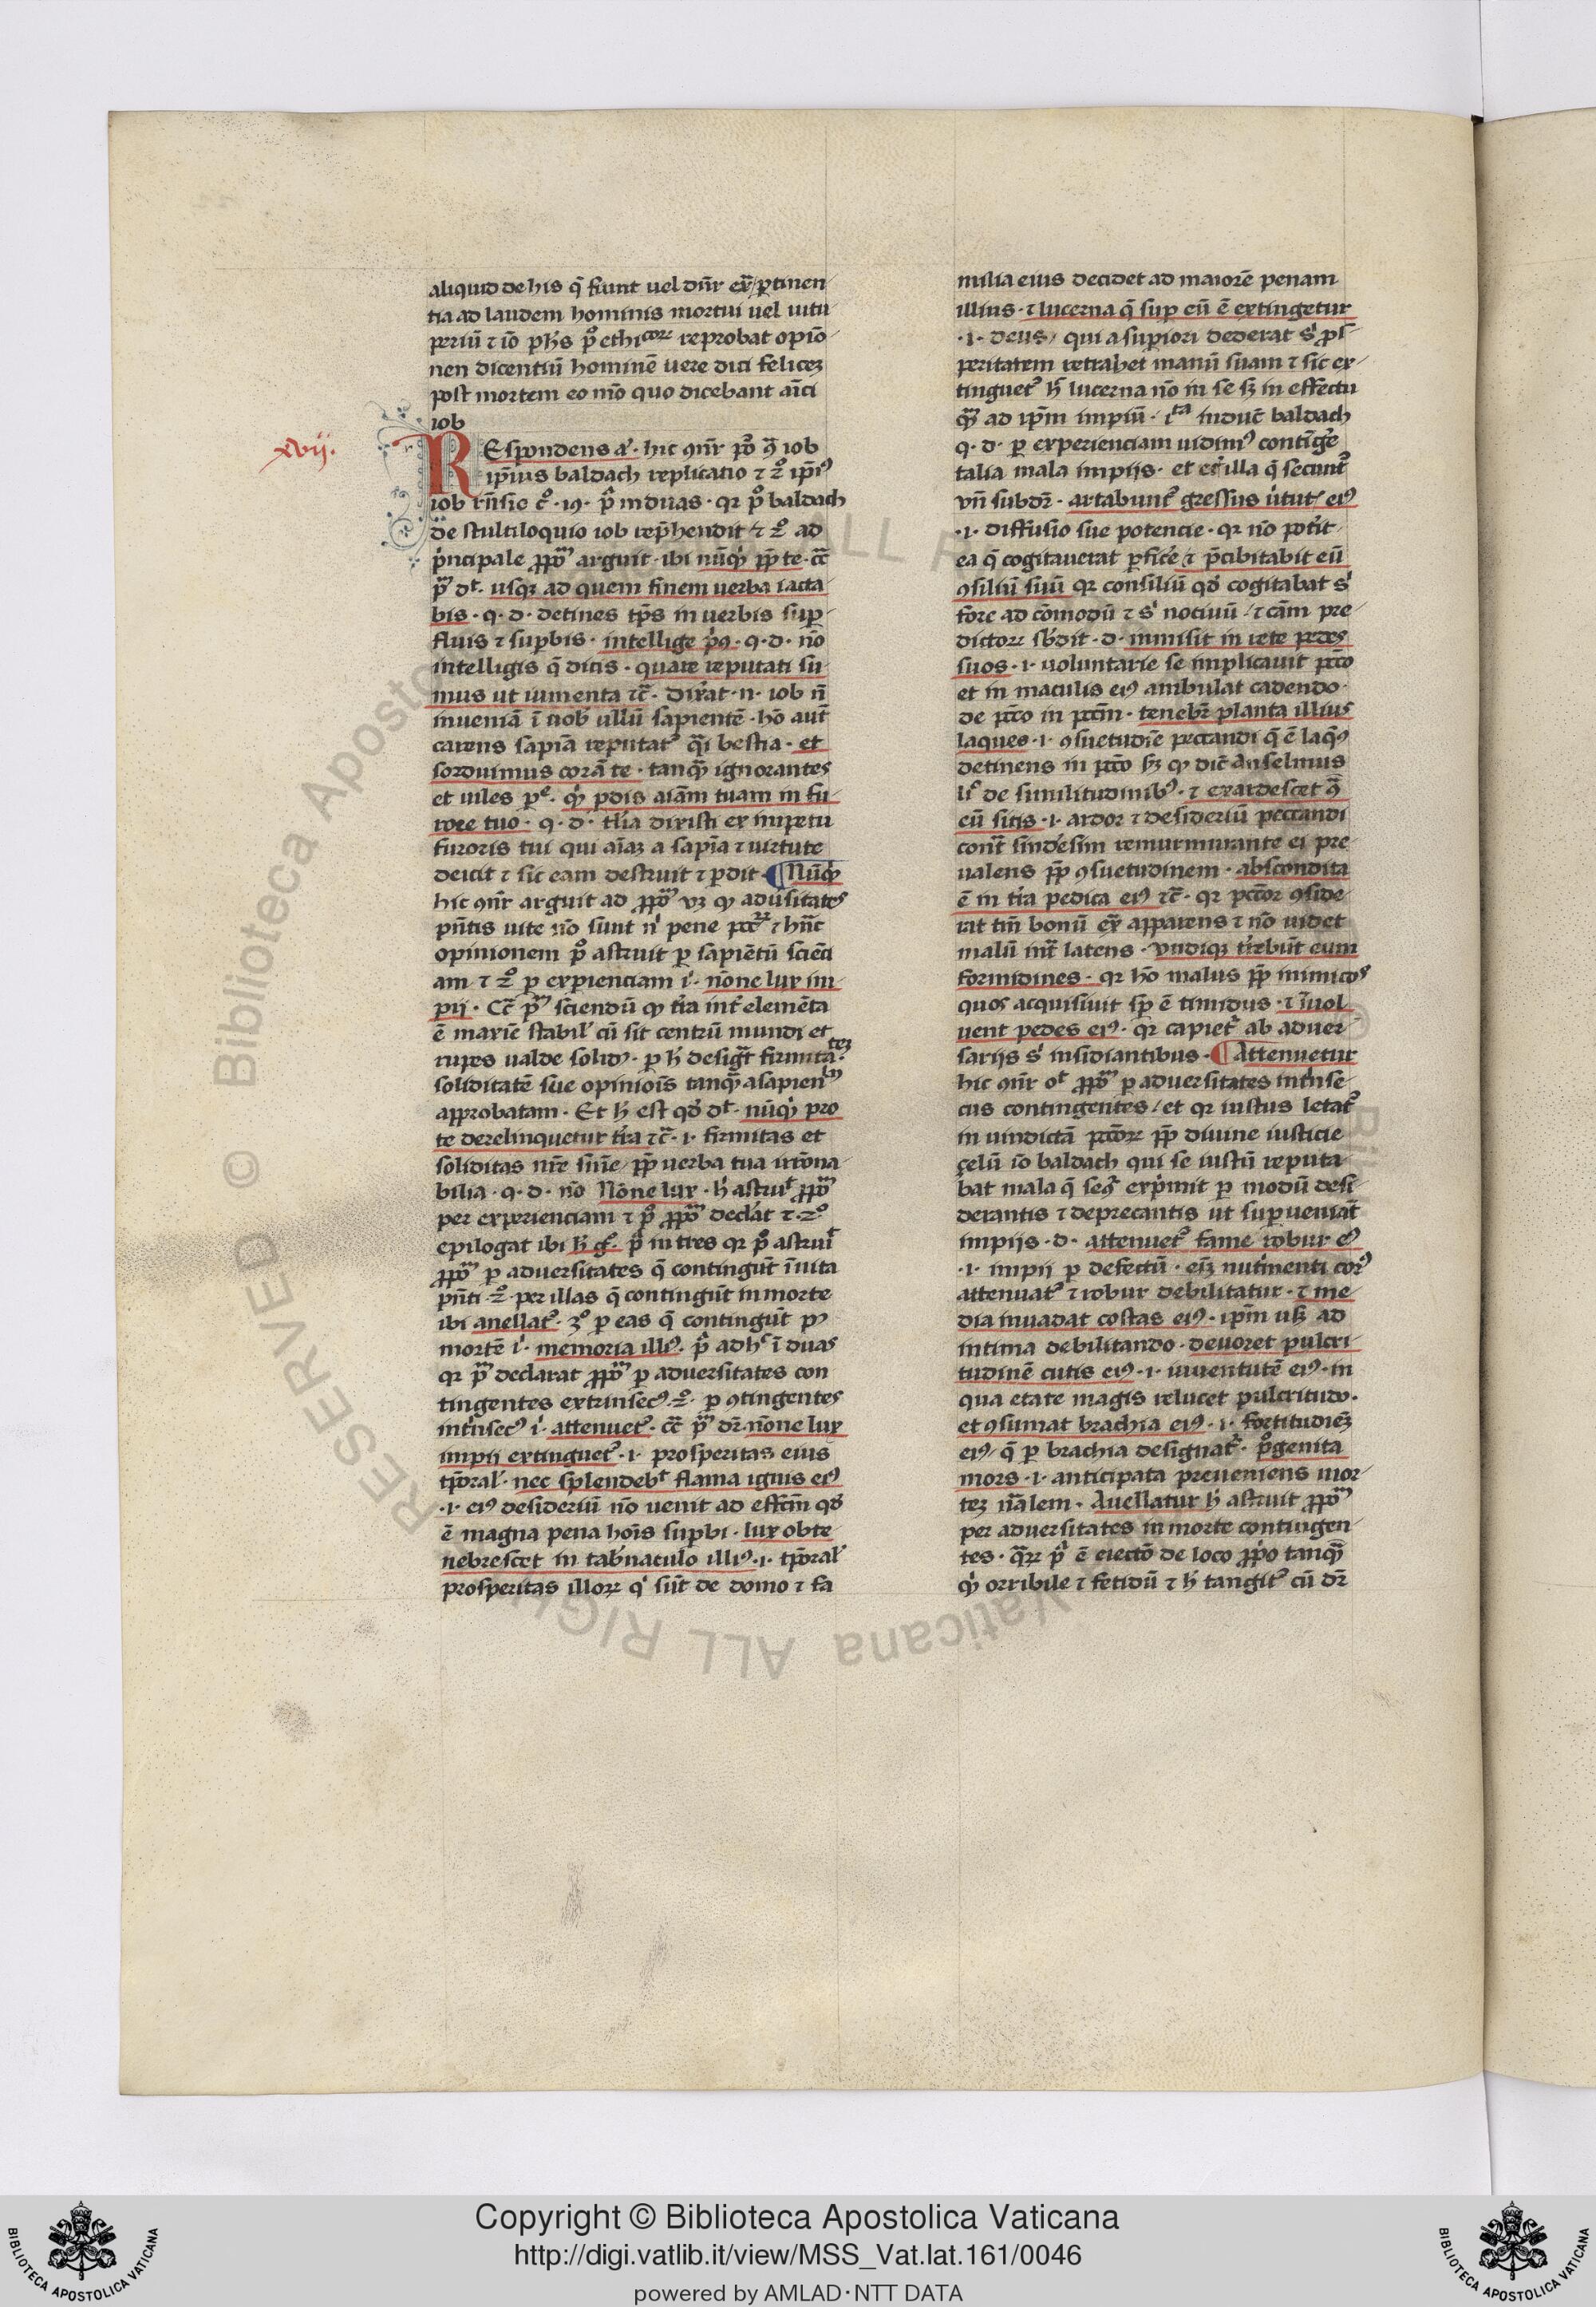 aliquid de his q̄ fiunt uel dn̄r ex̄ ꝑtinen
tia ad laudem hominis mortui uel uitu
periū ⁊ iō ph̄s pº ethicoꝝ reprobat opiō
nen dicentiū hominē uere dici felicez
post mortem eo mō quo dicebant aīci
iob
xvij.
REspondens aͭ. hic ꝯn̄r pō q̄ iob
ip̄ius baldach replicatio ⁊ 2º ip̄iꝰ
iob rn̄sio
de stultiloquio iob rep̄hendit ⁊ 2º ad
p̍ncipale ꝓpōm arguit. ibi nūqͥd ꝓp̄ te. cc̄
pͫ dͭ. usqꝫ ad quem finem uerba iacta
bis. q. d. detines tp̄s in uerbis suꝑ
fluis ⁊ suꝑbis. intellige p̍ꝰ. q. d. nō
intelligis q̄ dicis. quare reputati su
mus ut iumenta ⁊c̄. dixat. n. iob n̄
inueniā ī uob̍ ullū sapientē. hō aut̄
carens sapīa reputatᷣ qͣi bestia. et
sorduimus corā te. tanqͣ ignorantes
et uiles. qͥ ꝑdis aīam tuam in fu
rore tuo. q. d. tͣlia dixisti ex impetu
furoris tui qui aīaꝫ a sapīa ⁊ uirtute
deicit ⁊ sic eam destruit ⁊ ꝑdit. ¶ Nūqͥd
hic ꝯn̄r arguit ad ꝓpōm vꝫ ꝙ aduersitates
pn̄tis uite nō sunt n̍ pene pcc̄oꝝ ⁊ hn̄c
opinionem pº astruit ꝑ sapiētū sciēti
am ⁊ 2º ꝑ exꝑienciam i̍. nōne lux im
pij. Cc̄ pͫ sciendū ꝙ tr̄a int̄ elemēta
ē maxīe stabil̍ cū sit centrū mundi et
rupes ualde solidꝰ. ꝑ h̍ desigͣt firmitateꝫ
soliditatē sue opiniois tanqͣ a sapientibꝫ
approbatam. Et h̍ est qd̍ dͭ. nūqͥd pro
te derelinquetur tr̄a ⁊c̄. i. firmitas et
soliditas nr̄e snīe ꝓp̄ uerba tua irrōna
bilia. q. d. nō Nōne lux. h̍ astruit ꝓpōm
per experienciam ⁊ pº ꝓpōm declarat ⁊ 2º
epilogat ibi h̍ gͦ. pͥ in tres qꝛ pº astruit
ꝓpōm ꝑ aduersitates q̄ contingūt ī uita
pn̄ti. 2º. per illas q̄ contingūt in morte
ibi auellatᷣ. 3º ꝑ eas q̄ contingūt pꝰ
mortē i̍. memoria illiꝰ. pͥ adhᶜ ī duas
qꝛ pͫ declarat ꝓpōm ꝑ aduersitates con
tingentes extrinsecꝰ. 2º. ꝑ ꝯtingentes
int̍nsecꝰ i̍. attenuetᷣ. cc̄ pͫ dr̄. nōne lux
impij extinguetᷣ. i. prosperitas eius
tp̄oral̍. nec splendebͭ flama ignis eiꝰ
.i. eiꝰ desideriū nō uenit ad effc̄m qd̍
ē magna pena hōis suꝑbi. lux obte
nebrescet in tab̍naculo illiꝰ. i. tp̄oral̍
prosperitas illoꝝ qͥ sūt de domo ⁊ fa
milia eius decidet ad maiorē penam
illius. ⁊ lucerna q̄ suꝑ eū ē extingetur
.i. deus qui a superiori dederat s̍ ꝓs
peritatem retrahet manū suam ⁊ sic ex
tinguetᷣ h̍ lucerna nō in se sꝫ in effectu
qͫ ad ip̄m impiū. iᵗᵃ induc̄ baldach
q. d. ꝑ experienciam uidimꝰ contīge
talia mala impijs. et ec̄ illa q̄ secunt̄
vn̄ subdr̄. artabuntᷣ gressus ūtutꝭ eiꝰ
.i. diffusio sue potencie. qꝛ nō potit
ea q̄ cogitauerat ꝑfic̍e ⁊ p̄cibitabit eū
ꝯsiliū suū qꝛ consiliū qd̍ cogitabat s̍
fore ad cōmodū ⁊ s̍ nociuū ⁊ cām pre
dictoꝝ sb̍dit. d. inmisit in rete pedes
suos. i. uoluntarie se implicauit pcc̄o
et in maculis eiꝰ ambulat cadendo
de pcc̄o in pcc̄m. tenebr̄ planta illius
laqueo. i. ꝯsuetudīe peccandi q̄ ē laqꝰ
detinens in pcc̄o sꝫ ꝙ dic̄ Anselmus
liᵒ de similitudinibꝰ. ⁊ exardescet qͣ
eū sitis. i. ardor ⁊ desideriū peccandi
contͣ sindesim remurmurante ei pre
ualens ꝓp̄ ꝯsuetudinem. abscondita
ē in tr̄a pedica eiꝰ ⁊c̄. qꝛ pcc̄or ꝯside
rat tm̄ bonū ex̄ apparens ⁊ nō uidet
malū int̄ latens. vndiqꝫ tr̄rebūt eum
formidines. qꝛ hō malus ꝓp̄ inimicos
quos acquisiuit sp̄ ē timidus. ⁊ īuol
uent pedes eiꝰ. qꝛ capietᷣ ab aduer
sarijs s̍ insidiantibus. ¶ Attenuetur
hic ꝯn̄r oͭ ꝓpōm ꝑ aduersitates int̍nse
cus contingentes et qꝛ iustus letatᷣ
in uindictā pcc̄oꝝ ꝓp̄ diuine iusticie
çelū iō baldach qui se iustū reputa
bat mala q̄ seqͣ exp̍mit ꝑ modū desi
derantis ⁊ deprecantis ut superueniāt
impijs. d. attenuetᷣ fame robur eiꝰ
.i. impij ꝑ defectū. eiꝫ nut̍menti corꝰ
attenuatᷣ ⁊ robur debilitatur. ⁊ īne
dia inuadat costas eiꝰ. ip̄m usqꝫ ad
intima debilitando. deuoret pulcri
tudinē cutis eiꝰ. i. iuuentutē eiꝰ. in
qua etate magis relucet pulcritudo.
et ꝯsumat brachia eiꝰ. i. fortitudieꝫ
eiꝰ q̄ ꝑ brachia designatᷣ. pͦgenita
mors. i. anticipata preueniens mor
teꝫ nāͣlem. Auellatur h̍ astruit ꝓpōm
per aduersitates in morte contingen
tes. qͣꝝ pͥ ē eiectō de loco ꝓp̍o tanqͣ
qͥ orribile ⁊ fetidū ⁊ h̍ tangitᷣ cū dr̄
RESERVED © Biblioteca Apostolica Vaticana ALL RIGHTS
Copyright © Biblioteca Apostolica Vaticana
http://digi.vatlib.it/view/MSS_Vat.lat.161/0046
powered by AMLAD·NTT DATA
BIBLIOTECA APOSTOLICA VATICANA
BIBLIOTECA APOSTOLICA VATICANA